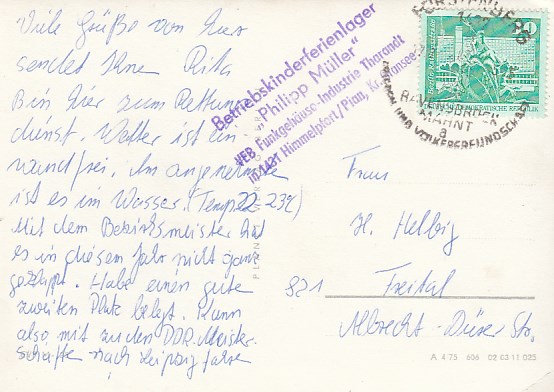 Viele Grüße von hier
sendet Ihne Rita
Bin hier zum Rettungs
dienst. Wetter ist ein
wandfrei, Am angenehmsten
ist es im Wasser. (Temp. 22 23°C)
Mit dem Bezirksmeister hat
es in diesem Jahr nicht ganz
geklappt. Habe einen guten
zweiten Platz belegt. Kann
also mit zu den DDR-Meister-
schaften nach Leipzig fahren
Betriebskinderferienlager
"Philipp Müller"
VEB Funkgehäuse-Industrie Tharandt
in 1431 Himmelpfort/Pian, Kr. Gransee
FÜRSTENBERG
RAVENSBRÜCK
MAHNT
a
UND VÖLKERFREUNDSCHAFT
DEMOKRATISCHE REPUBLIK
Frau
H. Helbig
821 Freital
Albrecht-Dürer Str.
A 4 75 606 02 03 11 025